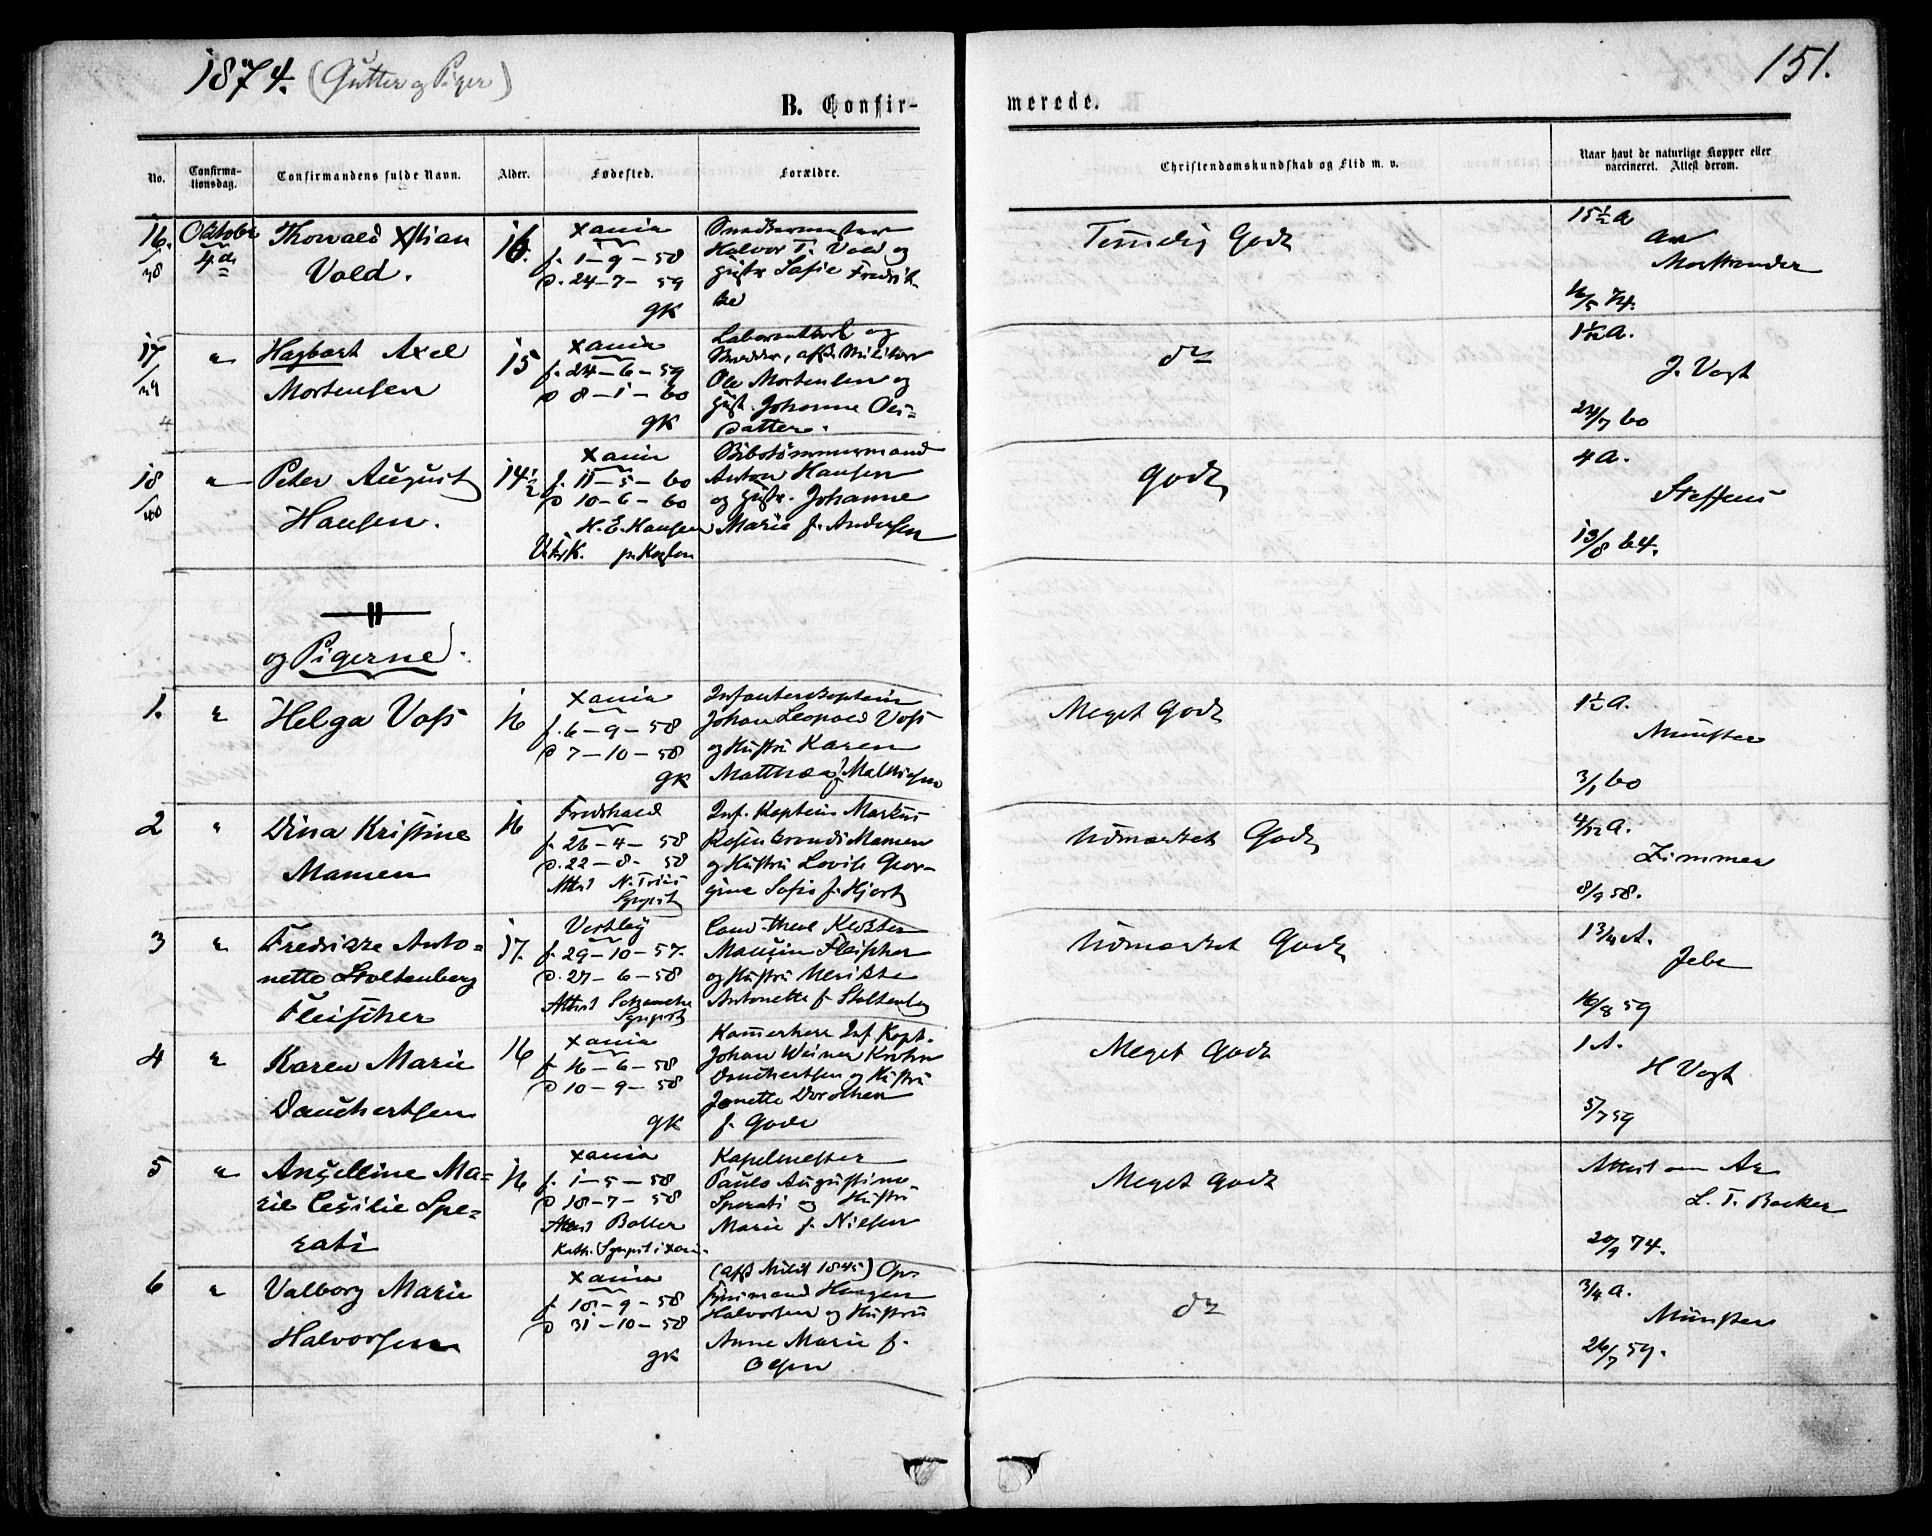 1874. (Gutter og Piger)
151.
B. Confir-
merede.
No.
Confirma-
tionsdag.
Confirmandens fulde Navn.
Alder.
Fødested.
Forældre.
Christendomskundskab og Flid m. v.
Naar havt de naturlige Kopper eller
vaccineret. Attest derom.
16.
38
Oktober
4de
Thorvald Xstian
Vold.
16.
Xania
f. 1-9-58
d. 24-7-59
gk
Snedkermester
Halvor T. Vold og
Hustr Sofie Fredrik-
ke
Temelig Godt
15 1/2 A
Morttrander
16/5 74.
17
39
"
Hagbart Axel
Mortensen
15
Xania
f. 24-6-59
d 8-1-60
gk
og
Ole Mortensen og
Hust. Johanne Ols-
datter.
do
1 1/12 A.
J. Vogt
24/7 60
18
40
"
Peter August
Hansen.
14 1/2
Xania
f. 11-5-60
d 10-6-60
H. E. Hansen
Anton Hansen
og Hustr. Johanne
Marie f. Andersen
Godt
4 A.
Steffens
13/8 64.
og Pigerne.
1.
"
Helga Voss
16
Xania
f. 6-9-58
d 7-10-58
gk
Infanterikaptein
Johan Leopold Voss
og Hustru Karen
Matthea f. Mathisen
Meget Godt
1 1/2 A.
Münster
3/1 60
2
"
Dina Kristine
Mamen
16
Fredshald
f. 26-4-58
d. 22-8-58
Attest N. Friis
Sgnprst
Inf. Kaptein Markus
Rosenkrands Mamen
og Hustru Lovise Geor-
gine Sofie f. Hjort
Udmærket Godt
4/12 A.
Zimmer
8/9 58.
3
"
Fredrikke Anto-
nette Stoltenberg
Fleischer
17.
Vestby
f. 29-10-57.
d. 27-6-58
Attest
Sgnprst
Cand. theol Klokker
Fleischer
og Hustru Ulrikke
Antonette f. Stoltenb
Udmærket Godt
1 3/4 A.
Jebe
16/8 59
4
"
Karen Marie
Dauchertsen
16
Xania
f. 16-6-58
d 10-9-58
gk
Kammerherr Inf Kapt.
Johan Werner Krohn
Dauchertsen og Hustru
Janette Dorothea
f. Gode
Meget Godt
1 A.
H Vogt
5/7 59
5
"
Angelline Ma-
rie Cesilie Spe-
rati
16
Xania
f. 1-5-58
d 18-7-58
Attest Boller
Kath. Sgnprst i Xania.
Kapelmester
Paulo Augustino
Sperati og Hustru
Marie f. Nielsen
Meget Godt
Attest om Ar
L. T. Backer
20/9 74.
6
"
Valborg Marie
Halvorsen
Xania
f. 18.-9-58
d 31-10-58
gk
(afsk Milit 1845) Op-
synsmand Haagen
Halvorsen og Hustru
Anne Marie f.
Olsen
do
3/4 A.
Münster
26/7 59.